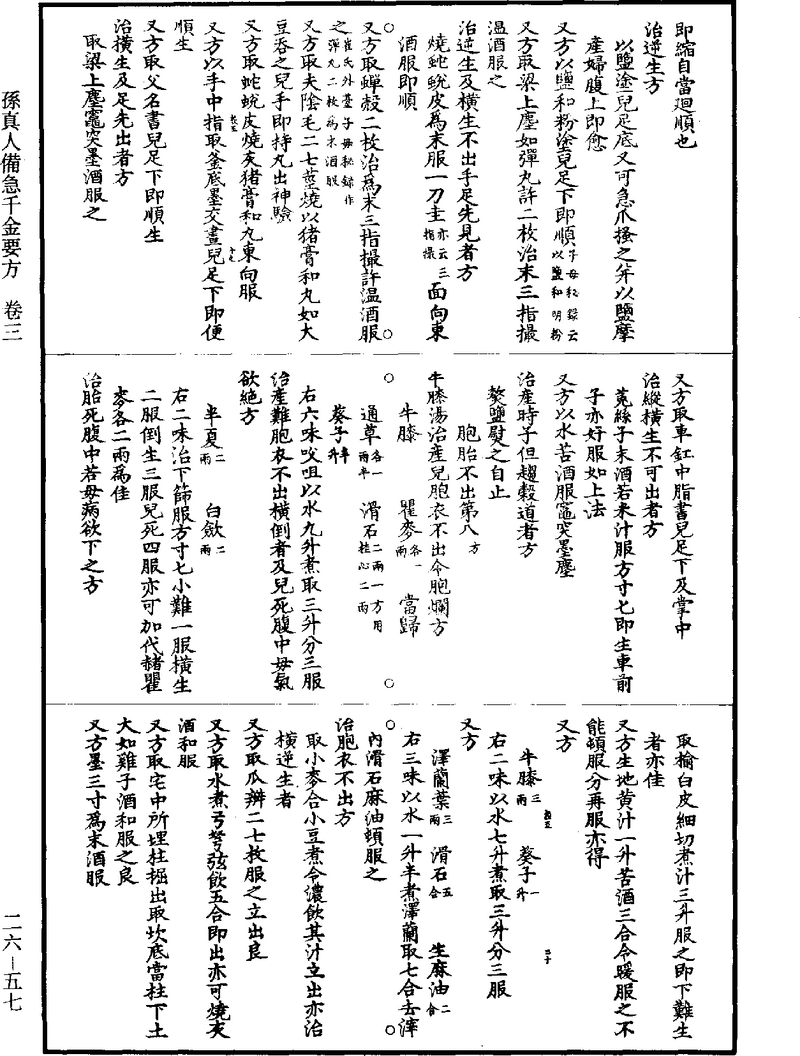 孫真人備急千金要方　卷三
即縮自當迴順也
治逆生方
以鹽塗兒足底又可急爪搔之并以鹽摩
產婦腹上即愈
又方以鹽和粉塗兒足下即順子母秘錄云以鹽和明粉
又方取梁上塵如彈丸許二枚治末三指撮
温酒服之
治逆生及橫生不出手足先見者方
燒蛇蛻皮為末服一刀圭亦云三指撮面向東
酒服即順
又方取蟬殼二枚治為末三指撮許温酒服
之崔氏外臺子母秘錄作彈丸二枚為末酒服
又方取夫陰毛二七莖燒以猪膏和丸如大
豆吞之兒手即持丸出神驗
又方取蛇蛻皮燒灰猪膏和丸東向服
又方以手中指取釜底墨交畫兒足下即便
順生
又方取父名書兒足下即順生
治橫生及足先出者方
取梁上塵竈突墨酒服之
又方取車釭中脂書兒足下及掌中
治縱橫生不可出者方
菟絲子末酒若米汁服方寸匕即生車前
子亦好服如上法
又方以水苦酒服竈突墨塵
治產時子但趨穀道者方
熬鹽熨之自止
胞胎不出第八方
牛膝湯治產兒胞衣不出令胞爛方
牛膝　瞿麥各一兩　當歸
通草各一兩半　滑石二兩一方用桂心二兩
葵子半升
右六味㕮咀以水九升煮取三升分三服
治產難胞衣不出橫倒者及兒死腹中母氣
欲絕方
半夏二兩　白斂二兩
右二味治下篩服方寸匕小難一服橫生
二服倒生三服兒死四服亦可加代赭瞿
麥各二兩為佳
治胎死腹中若母病欲下之方
取榆白皮細切煮汁三升服之即下難生
者亦佳
又方生地黃汁一升苦酒三合令暖服之不
能頓服分再服亦得
又方
牛膝三兩　葵子一升
右二味以水七升煮取三升分三服
又方
澤蘭葉三兩　滑石五合　生麻油二合
右三味以水一升半煮澤蘭取七合去滓
內滑石麻油頓服之
治胞衣不出方
取小麥合小豆煮令濃飲其汁立出亦治
橫逆生者
又方取瓜瓣二七枚服之立出良
又方取水煮弓弩弦飲五合即出亦可燒灰
酒和服
又方取宅中所埋柱掘出取坎底當柱下土
大如雞子酒和服之良
又方墨三寸為末酒服
二六—五七